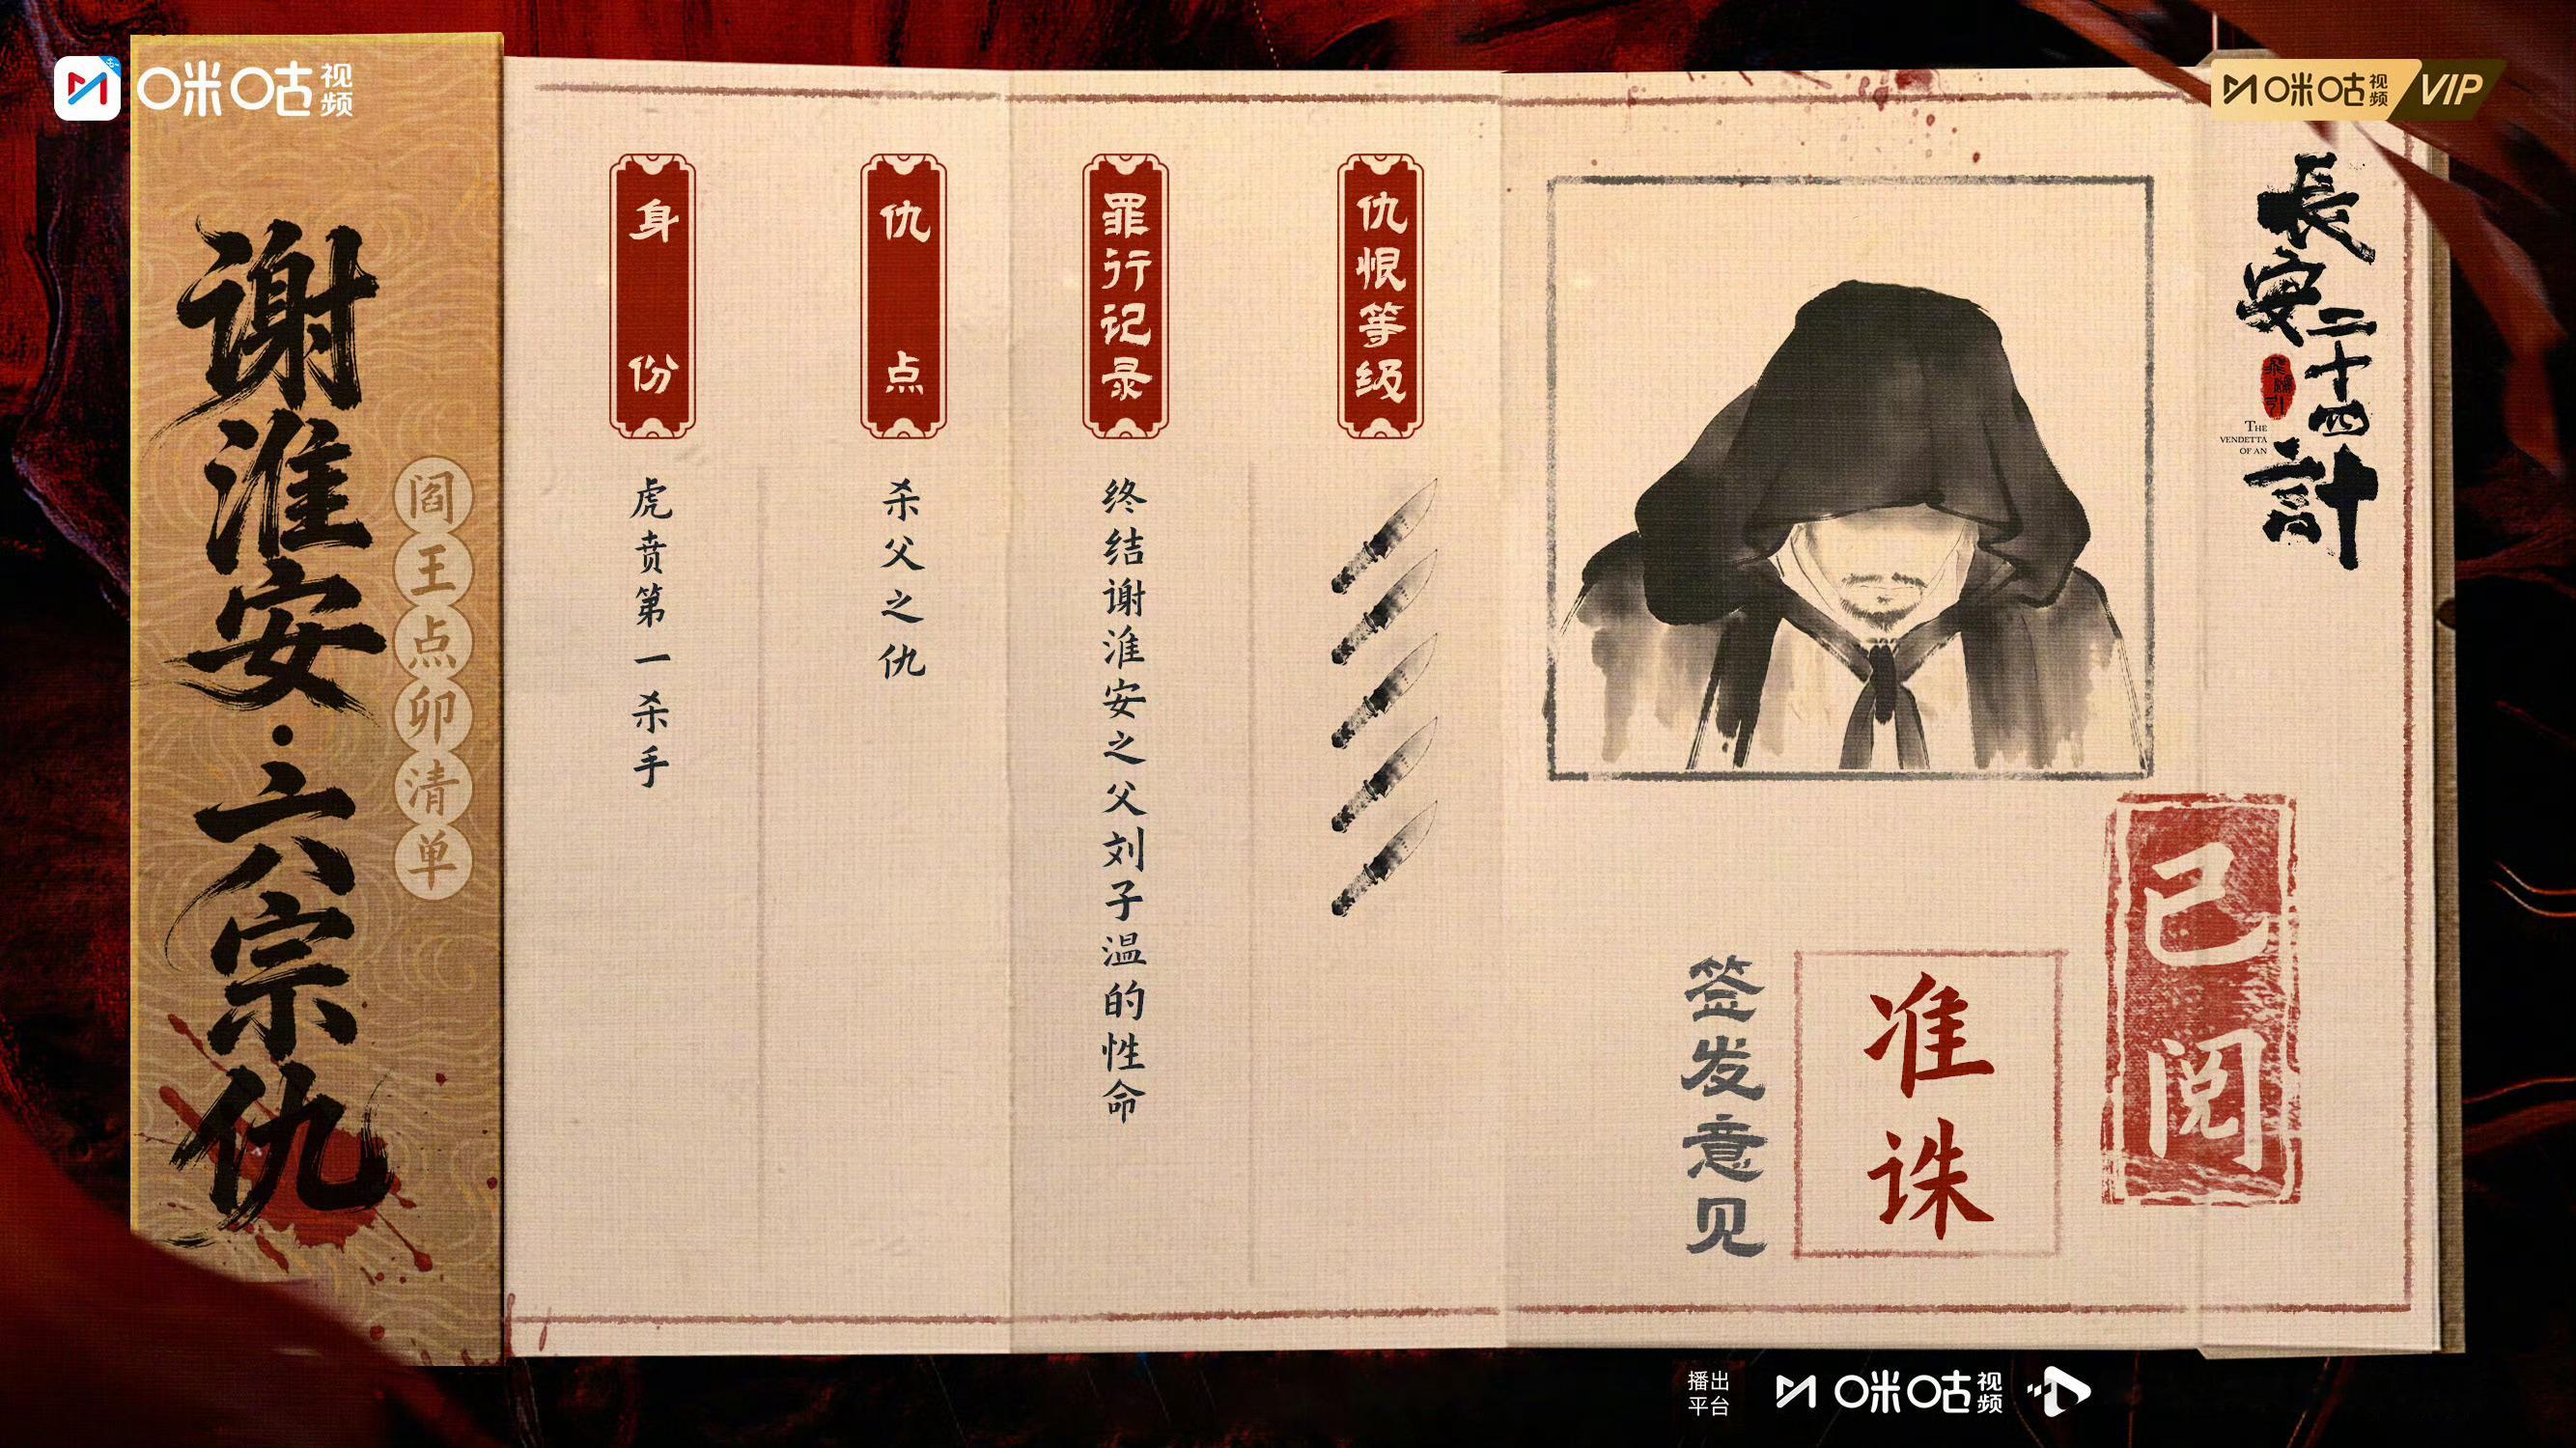 咪咕视频
谢淮安·六宗仇
阎王点卯清单
身份
虎贲第一杀手
仇点
杀父之仇
罪行记录
终结谢淮安之父刘子温的性命
仇恨等级
签发意见
准诛
已阅
咪咕视频 VIP
長安二十四計
THE
VENDETTA
OF AN
播出平台
咪咕视频